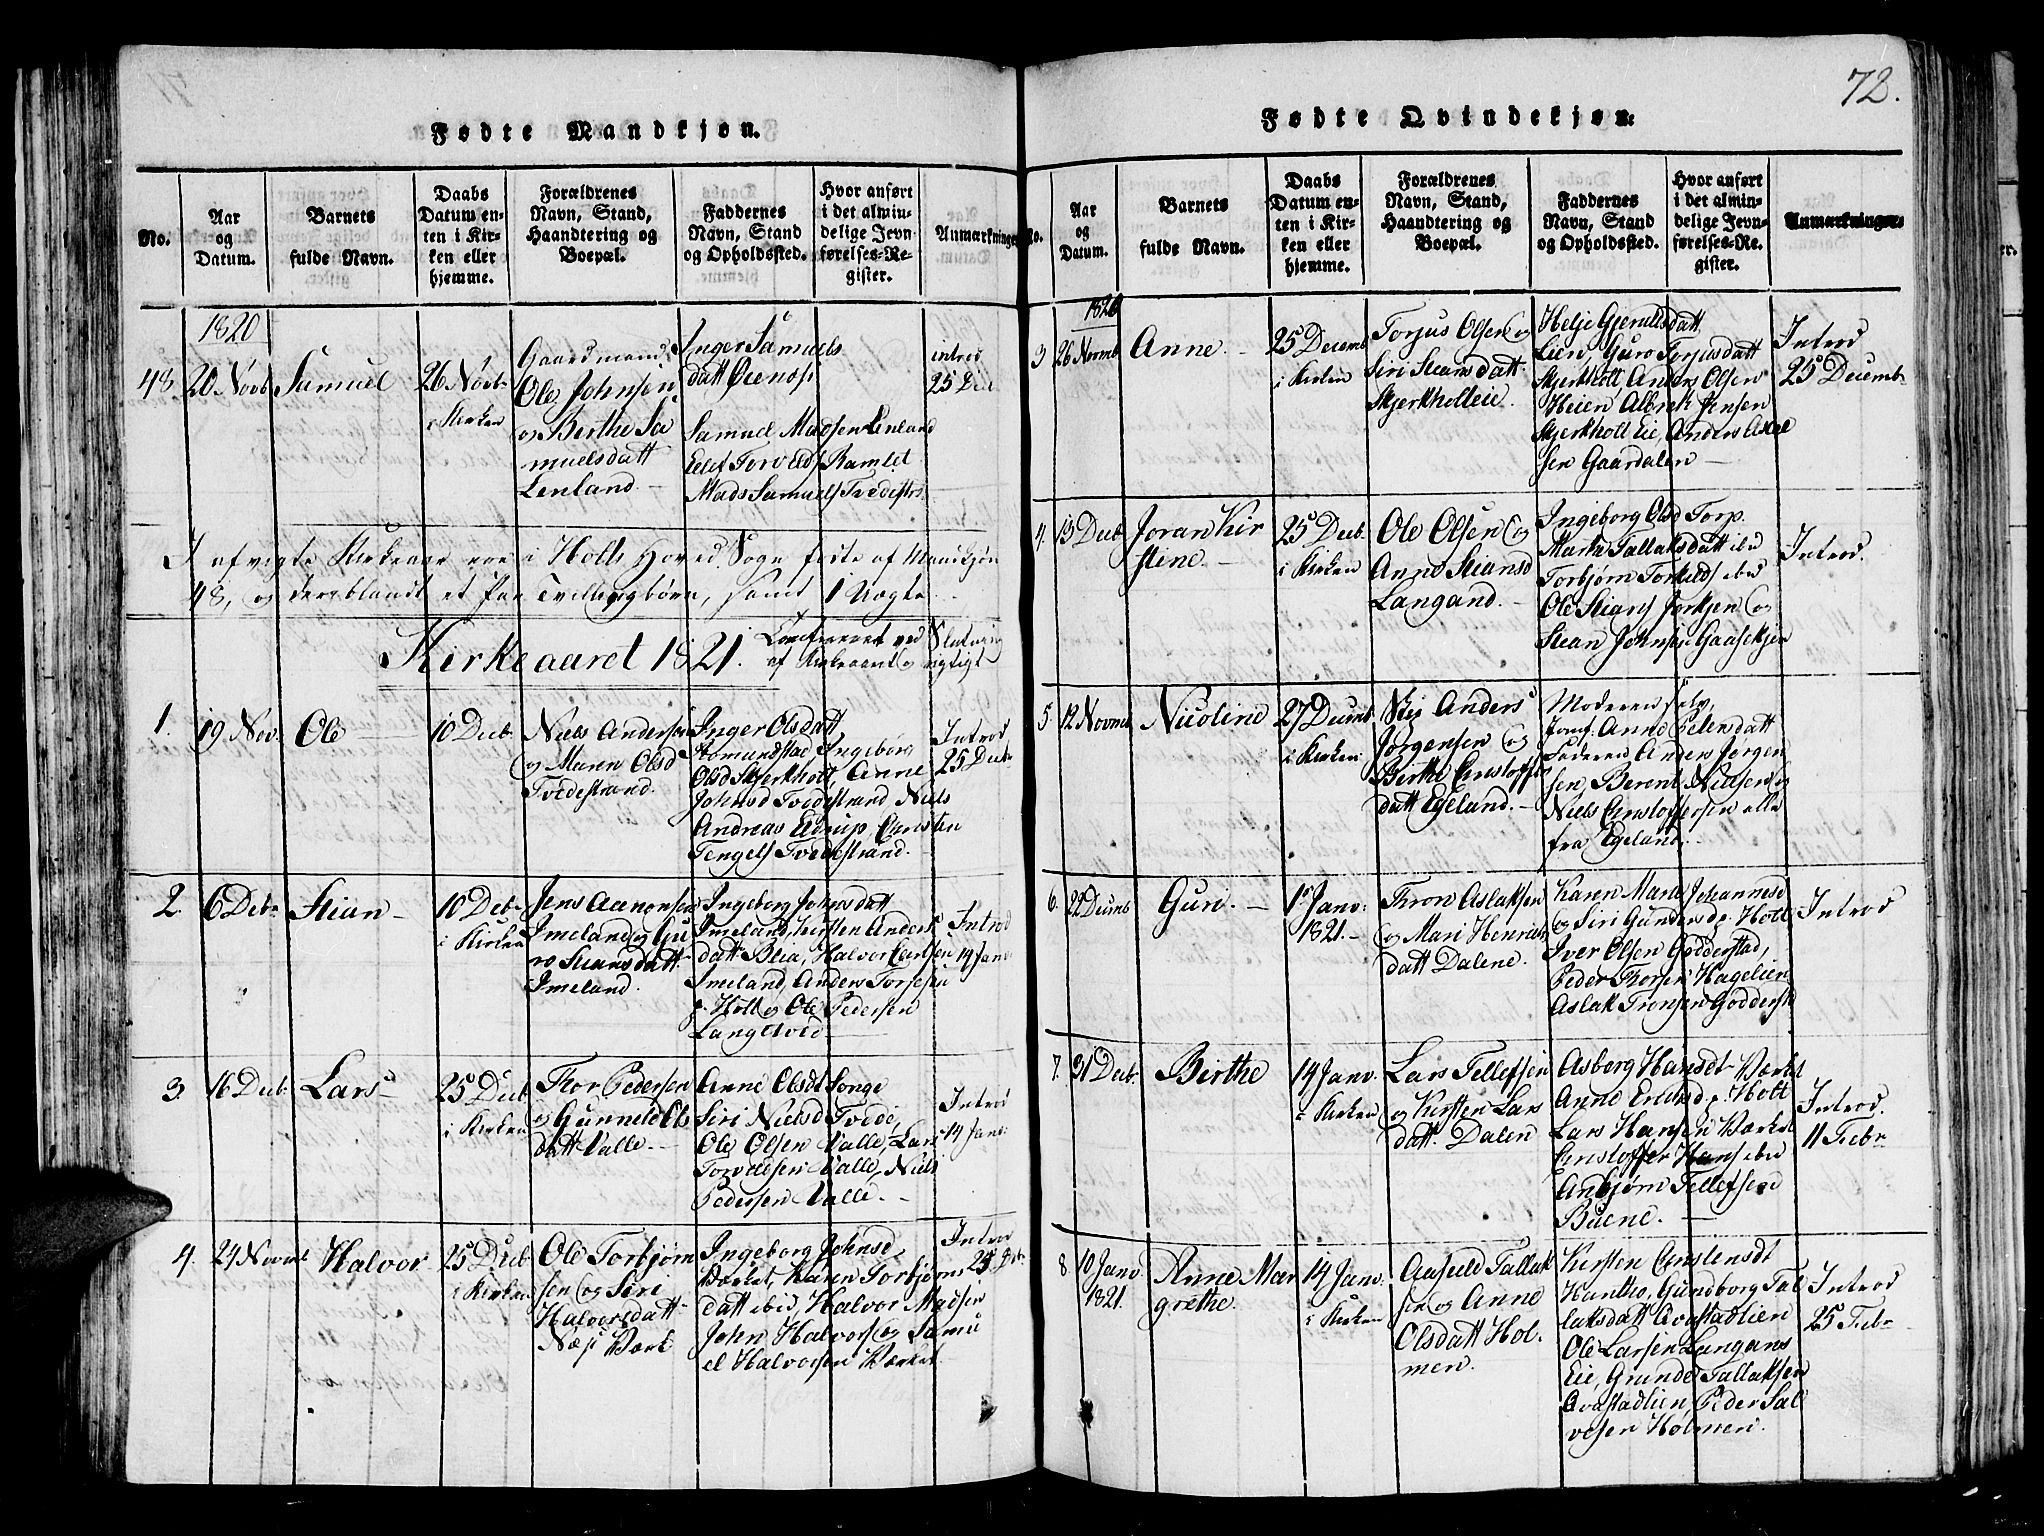 Fødte Mandkjøn.
No.
Aar
og
Datum.
Barnets
fulde Navn.
Daabs
Datum en-
ten i Kir-
ken eller
hjemme.
Forældrenes
Navn, Stand,
Haandtering og
Boepæl.
Faddernes
Navn, Stand
og Opholdssted.
Hvor anført
i det almin-
delige Jevn-
førelses-Re-
gister.
Anmærkninger
1820
48.
20 Novb
Samuel
26 Novb
i Kirken
Gaardmand
Ole Johnsen
og Berthe Sa
muelsdatt
Lenland
Inger Samuels
datt
Samuel Madsen Lenland
Eilef Torvelds Ramlet
Mads Samuels Tvedestr.
introd
25 Dec
I afvigte Kirkeaar ere i Holts Hoved Sogn fødte af Mandkjøn
48, og deriblandt et Par Tvillingbørn, samt 1 Uægte.
Kirkeaaret 1821.
Confereret ved Slutning
af Kirkeaaret og rigtigt
1.
19 Nov.
Ole
10 Decb.
Niels Anderse
og Maren Olsd
Tvedestrand.
Inger Olsdatt
Aomundstad, Ingeborg
Olsd Skjerkholt, Anne
Johnsd Tvedestrand, Niels
Andreas Edrup, Christen
Tengels Tvedestrand.
Introd
25 Decbr
2.
6 Debr
Stian
10 Debr
i Kirken
Jens Aanonsen
Imeland og Gu
ro Stiansdatt
Imeland.
Ingeborg Johnsdatt
Imeland, Kirsten Anders
datt Blia, Halvor Carlsen
Imeland, Anders Torsesen
p. Holt og Ole Pedersen
Langetved
Introd
14 Janv
3.
16 Decb.
Lars
25 Decb
i Kirken
Thor Pedersen
og Gunneld Els
datt Valle
Anne Olsdt Songe
Siri Nielsd Tvede,
Ole Olsen Valle, Lars
Torvelsen Valle, Niels
Pedersen Valle.
Introd
14 Janv.
4.
24 Novmb
Halvor
25 Decb
i Kirken
Ole Torbjørn
sen og Siri
Halvorsdatt
Næs Værk
Ingeborg Johnsd
Værket, Karen Torbjørns
datt ibid, Halvor Madsen
John Halvors og Samu
el Halvorsen Værket.
Introd
25 Debr.
72.
Fødte Qvindekjøn.
No.
Aar
og
Datum.
Barnets
fulde Navn.
Daabs
Datum en-
ten i Kir-
ken eller
hjemme.
Forældrenes
Navn, Stand,
Haandtering og
Boepæl.
Faddernes
Navn, Stand
og Opholdssted.
Hvor anført
i det almin-
delige Jevn-
førelses-Re-
gister.
Anmærkninger.
1820
3
26 Novmb
Anne.
25 Decemb
i Kirken
Torjus Olsen og
Siri Stiansdatt.
Skjerkholteie.
Helje Gjerulfsdatt
Lien, Guro Torjusdatt
Skjerkholt, Anders Olsen
Heien, Albrek Jensen
Skjerkholt Eie, Anders Aslak
sen Gaardalen
Introd
25 Decemb
4.
13 Decb
Joran Kir
stine.
25 Decb.
i Kirken
Ole Olsen og
Anne Stiansd
Langand.
Ingeborg Olsd Torp.
Marthe Tallaksdatt ibid
Torbjørn Torkilds ibid
Ole Stians Jorkjen og
Stean Johnsen Gaasekjen
Introd.
5.
12 Novmb
Nicoline
27 Decmb
i Kirken
Anders
Jørgensen og
Berthe Cristoffers
datt Egeland.
Moderen selv,
Jomf. Anne Petersdatt
Faderen Anders Jørgen
sen, Berent Nielsen og
Niels Cristoffersen alle
fra Egeland.
6.
22 Decmb
Guri.
1 Janv.
1821.
Thron Aslaksen
og Mari Henriks
datt Dalene.
Karen Marie Johannesd
og Siri Gundersd p. Holt
Iver Olsen Godderstad,
Peder Thorsen Hagelien
Aslak Tronsen Godderst
Introd
7.
31 Decb.
Birthe
14 Janv.
i Kirken
Lars Tellefsen
og Kirsten Lars
datt. Dalen
Asborg Hansdt Værket
Anne Ericsd p. Holt
Lars Hansen Værket
Cristoffer Hans ibid
Anbjørn Tellefsen
Buene.
Introd.
11 Febr
8.
10 Janv
1821.
Anne Mar
grethe.
14 Janv.
i Kirken
Aasuld Tallak
sen og Anne
Olsdatt Hol-
men.
Kirsten Cristensdt
Hantho, Gundborg Tal
laksdatt Qvastadlien
Ole Larsen Langans
Eie, Grunde Tallaksen
Qvastadlien, Peder Sal
vesen Holmen.
Introd
25 Febr